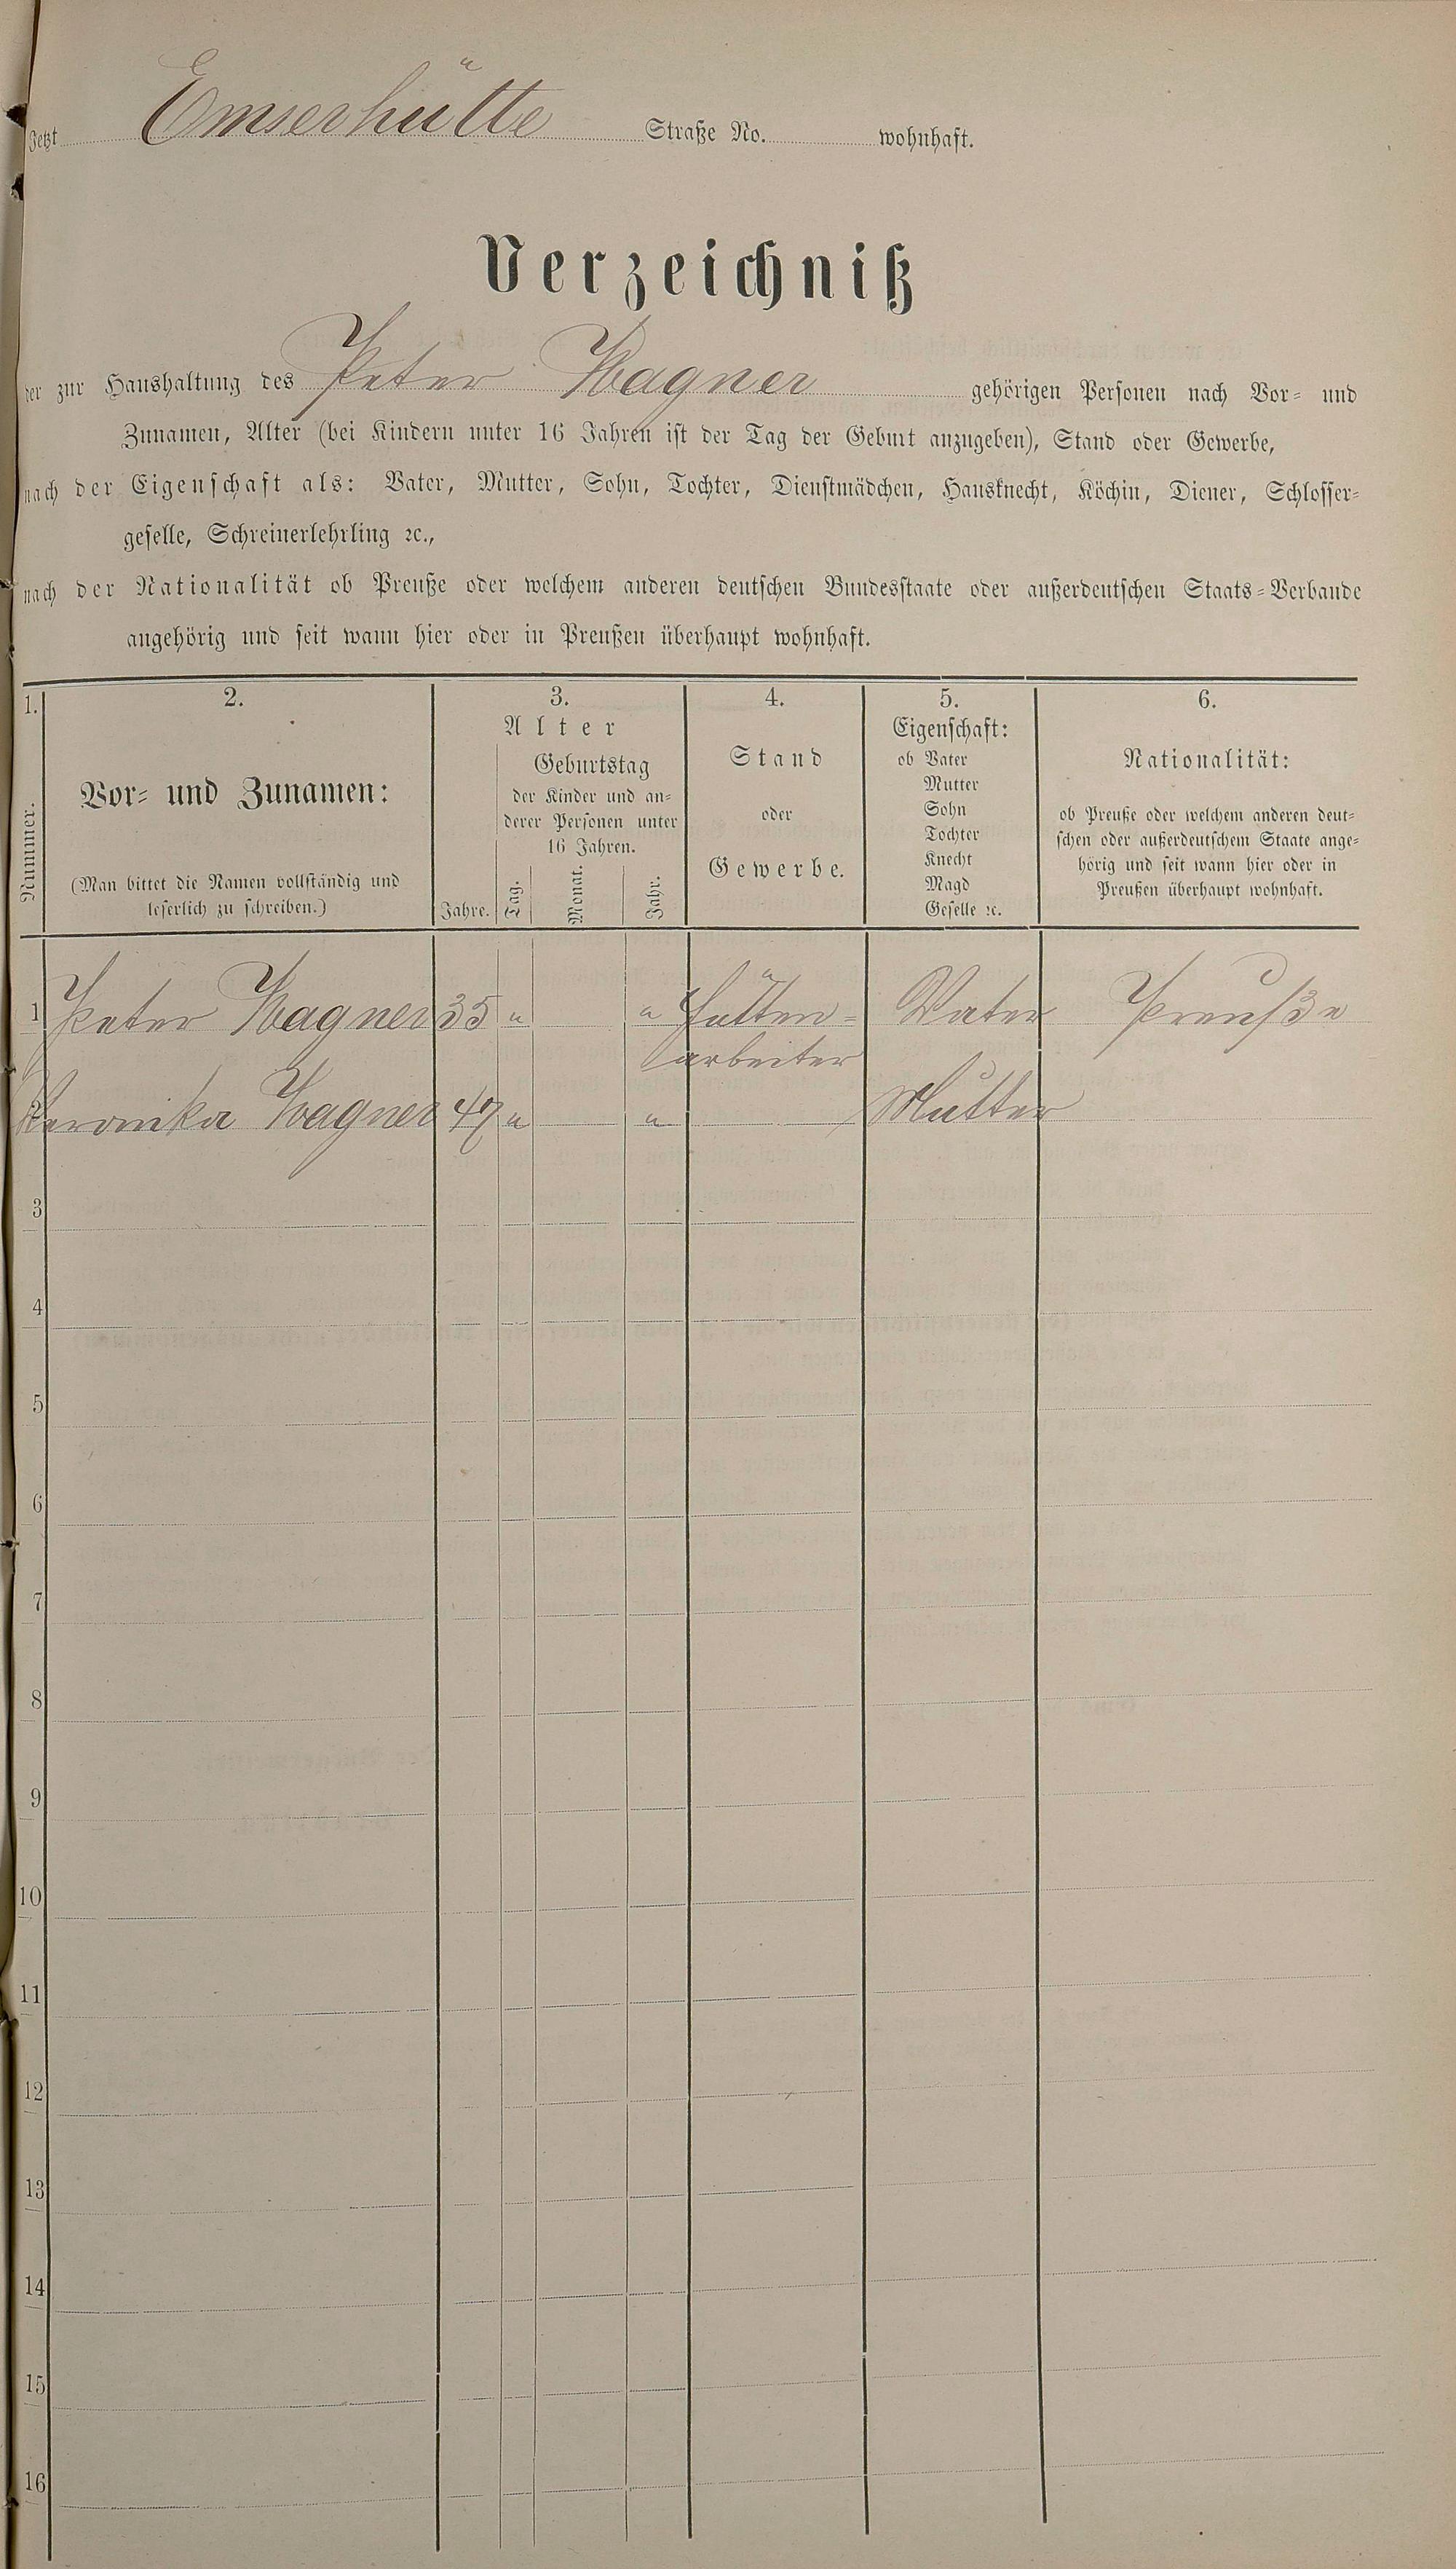 Jetzt Emserhütte Straße No. wohnhaft.
Verzeichniß
der zur Haushaltung des Peter Wagner gehörigen Personen nach Vor- und
Zunamen, Alter (bei Kindern unter 16 Jahren ist der Tag der Geburt anzugeben), Stand oder Gewerbe,
nach der Eigenschaft als: Vater, Mutter, Sohn, Tochter, Dienstmädchen, Hausknecht, Köchin, Diener, Schlosser-
geselle, Schreinerlehrling ꝛc.,
nach der Nationalität ob Preuße oder welchem anderen deutschen Bundesstaate oder außerdeutschen Staats-Verbande
angehörig und seit wann hier oder in Preußen überhaupt wohnhaft.
1.
Nummer.
2.
Vor- und Zunamen:
(Man bittet die Namen vollständig und
leserlich zu schreiben.)
3.
Alter
Jahre.
Geburtstag
der Kinder und an-
derer Personen unter
16 Jahren.
Tag.
Monat.
Jahr.
4.
Stand
oder
Gewerbe.
5.
Eigenschaft:
ob Vater
Mutter
Sohn
Tochter
Knecht
Magd
Geselle ꝛc.
6.
Nationalität:
ob Preuße oder welchem anderen deut-
schen oder außerdeutschem Staate ange-
hörig und seit wann hier oder in
Preußen überhaupt wohnhaft.
1 Peter Wagner 35 " " Hütten- Vater Preuße
arbeiter
2 Veronika Wagner 47 " " Mutter
3
4
5
6
7
8
9
10
11
12
13
14
15
16